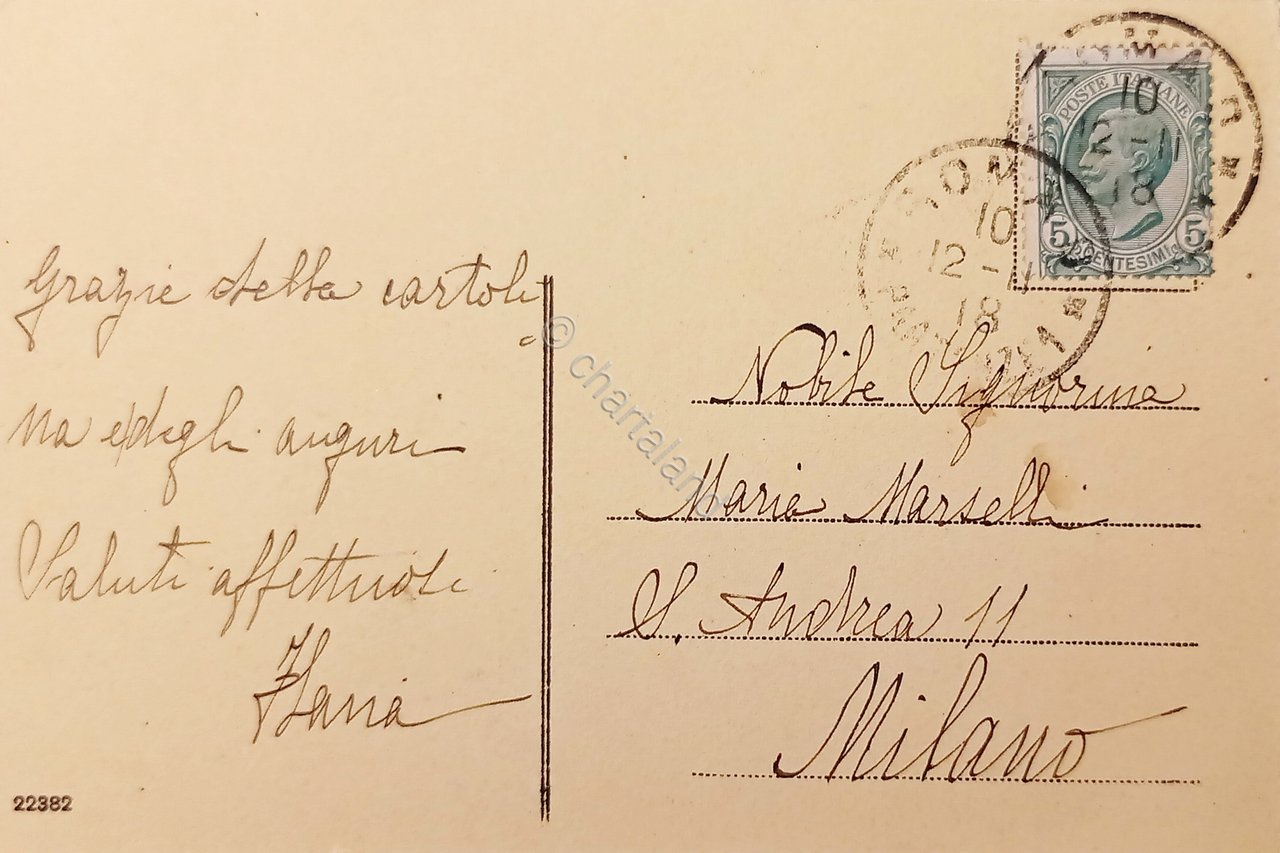 Grazie della cartoli
na e degli auguri
Saluti affettuosi
Ilaria
22382
POSTE ITALIANE
5 CENTESIMI 5
10
12-11
18
ROMA
10
12-11
18
Nobile Signorina
Maria Marselli
S. Andrea 11
Milano
© chartaland